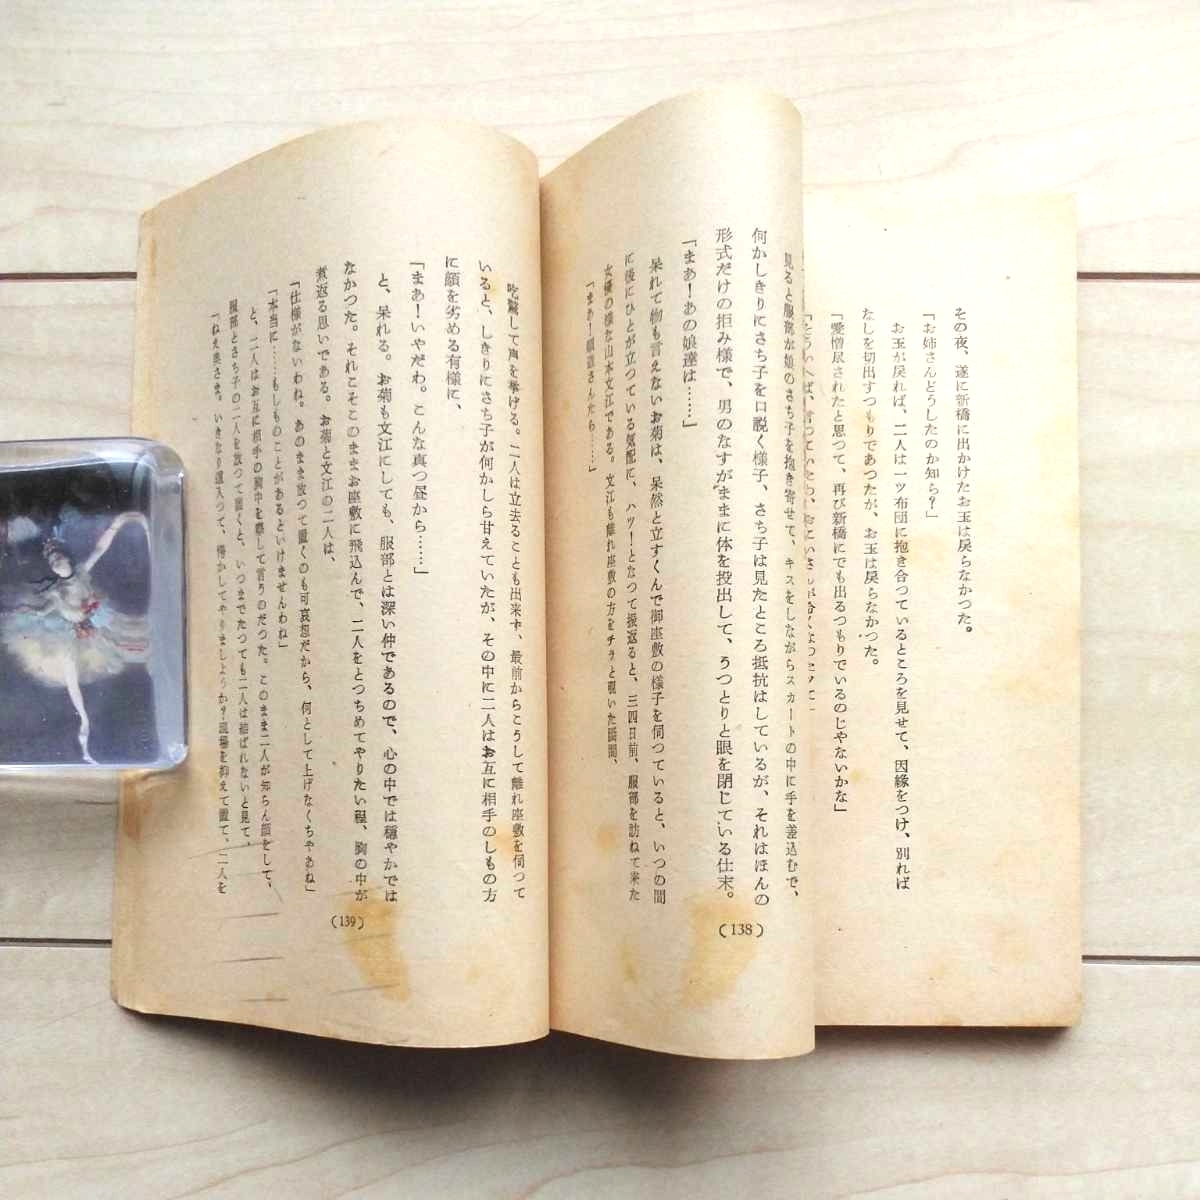 その夜、遂に新橋に出かけたお玉は戻らなかつた。
「お姉さんどうしたのか知ら？」
お玉が戻れば、二人は一ツ布団に抱き合つているところを見せて、因縁をつけ、別れば
なしを切出すつもりであつたが、お玉は戻らなかつた。
「愛憎尽されたと思つて、再び新橋にでも出るつもりでいるのじやないかな」
見ると服部が娘のさち子を抱き寄せて、キスをしながらスカートの中に手を差込むで、
何かしきりにさち子を口説く様子、さち子は見たところ抵抗はしているが、それはほんの
形式だけの拒み様で、男のなすがままに体を投出して、うつとりと眼を閉じている仕末。
「まあ！あの娘達は……」
呆れて物も言えないお菊は、呆然と立すくんで御座敷の様子を伺つていると、いつの間
に後にひとが立つている気配に、ハツ！となつて振返ると、三四日前、服部を訪ねて来た
女優の様な山本文江である。文江も離れ座敷の方をチラと覗いた瞬間、
「まあ！順造さんたら……」
(138)
吃驚して声を挙げる。二人は立去ることも出来ず、最前からこうして離れ座敷を伺つて
いると、しきりにさち子が何かしら甘えていたが、その中に二人はお互に相手のしもの方
に顔を劣める有様に、
「まあ！いやだわ。こんな真つ昼から……」
と、呆れる。お菊も文江にしても、服部とは深い仲であるので、心の中では穏やかでは
なかつた。それこそこのままお座敷に飛込んで、二人をとつちめてやりたい程、胸の中が
煮返る思いである。お菊と文江の二人は、
「仕様がないわね。あのまま放つて置くのも可哀想だから、何として上げなくちやあね」
「本当に……もしものことがあるといけませんわね」
と、二人はお互に相手の胸中を察して言うのだつた。このまま二人が知らん顔をして、
服部とさち子の二人を放つて置くと、いつまでたつても二人は結ばれないと見て、
「ねえ奥さま。いきなり這入つて、脅かしてやりましようか？現場を抑えて置て、二人を
(139)